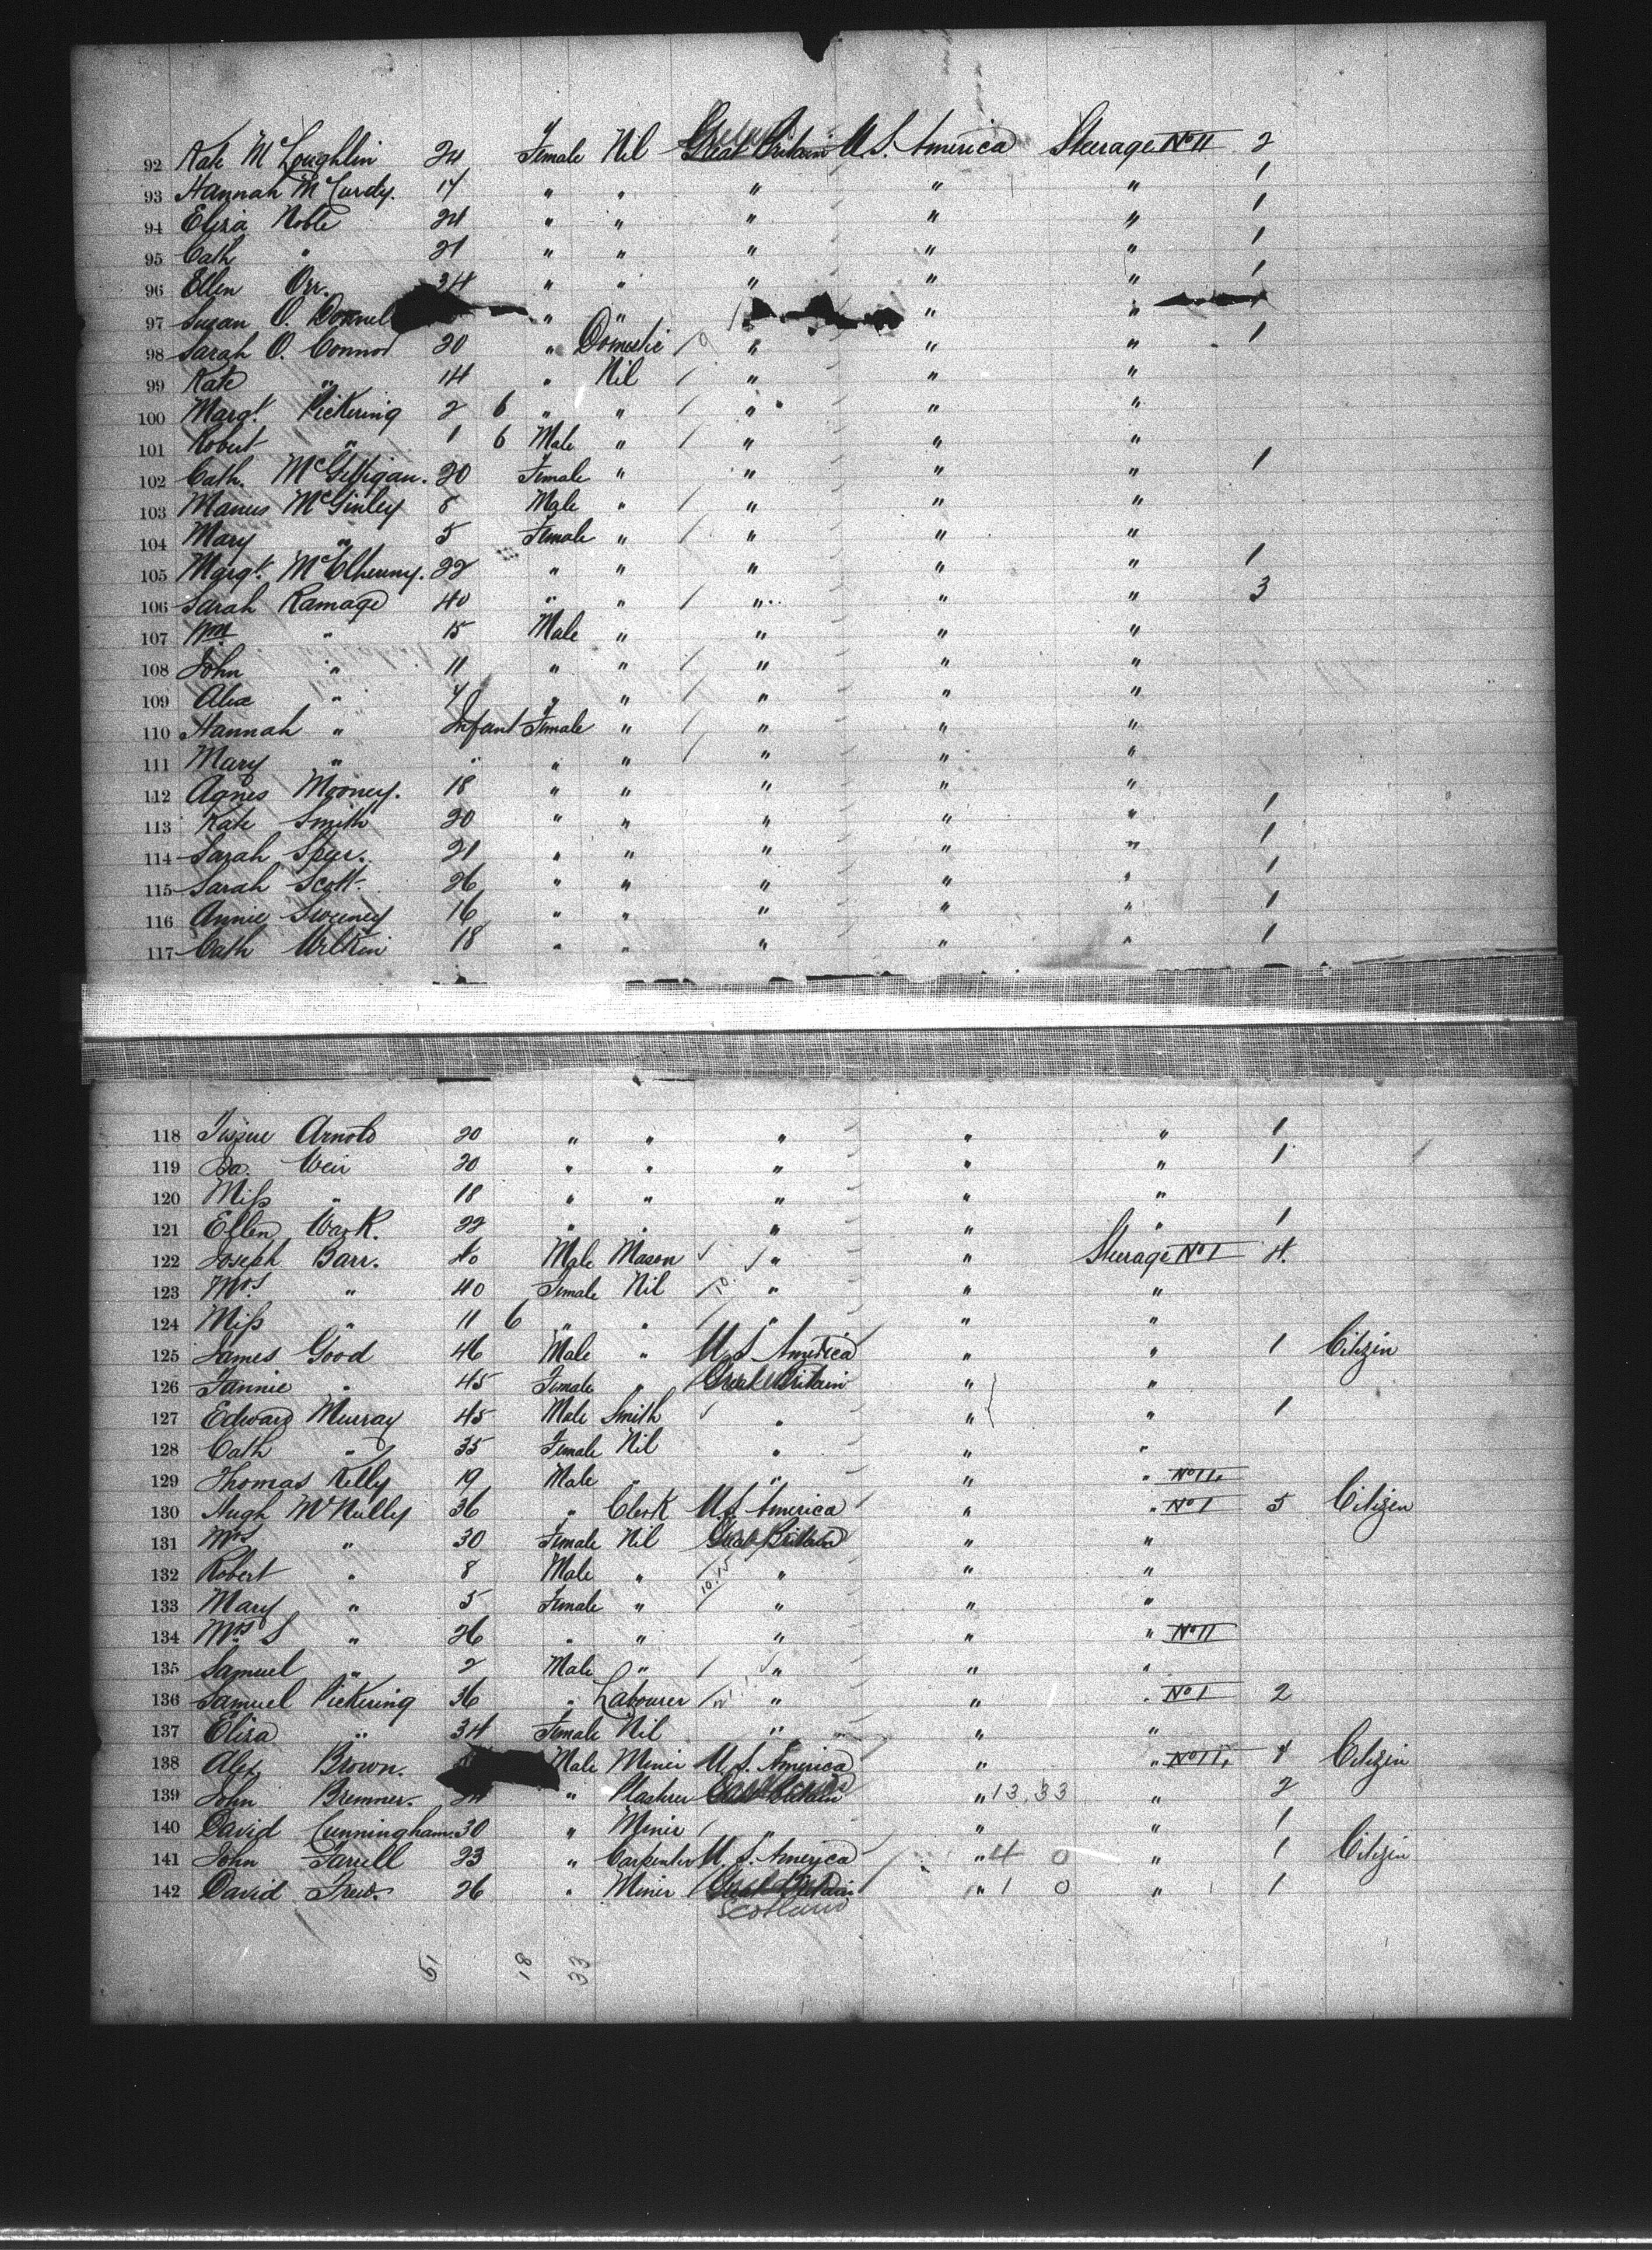 92 Kate McLoughlin 24 Female Nil Great Britain U.S. America Steerage No II 2
93 Hannah McCurdy. 17 " " " " " 1
94 Eliza Noble 24 " " " " " 1
95 Cath " 21 " " " " " 1
96 Ellen Orr. 24 " " " " " 1
97 Susan O. Donnel " " " "
98 Sarah O. Connor 20 " Domestic 9 " " " 1
99 Kate " 14 " Nil " " "
100 Margt. Pickering 2 6 " " " " "
101 Robert " 1 6 Male " " " "
102 Cath. McGilligan. 20 Female " " " " 1
103 Manus McGinley 8 Male " " " "
104 Mary " 5 Female " " " "
105 Margt. McElhenny. 22 " " " " " 1
106 Sarah Ramage 40 " " " " " 3
107 Wm " 15 Male " " " "
108 John " 11 " " " " "
109 Alex " " " " " "
110 Hannah " Infant Female " " " "
111 Mary " " " " " " "
112 Agnes Mooney. 18 " " " " "
113 Kate Smith 20 " " " " " 1
114 Sarah Speer. 21 " " " " " 1
115 Sarah Scott. 26 " " " " " 1
116 Annie Sweeney 16 " " " " " 1
117 Cath Wilkin 18 " " " " " 1
118 Arnold 20 " " " " " 1
119 Do. Weir 20 " " " " " 1
120 Miss " 18 " " " " "
121 Ellen Wark. 22 " " " " " 1
122 Joseph Barr. 40 Male Mason " " Steerage No I 4.
123 Mrs " 40 Female Nil 10. " " "
124 Miss " 11 6 " " " " "
125 James Good 46 Male " U S America " " 1 Citizen
126 Fannie " 45 Female " Great Britain " "
127 Edward Murray 45 Male Smith " " " 1
128 Cath " 35 Female Nil " " "
129 Thomas Kelly 19 Male " " " " No II.
130 Hugh McNulty 36 " Clerk U.S. America " " No I 5 Citizen
131 Mrs " 30 Female Nil Great Britain " "
132 Robert " 8 Male " 10.15 " " "
133 Mary " 5 Female " " " "
134 Mrs S " 26 " " " " " No II
135 Samuel " 2 Male " " " "
136 Samuel Pickering 36 " Labourer " " " No I 2
137 Eliza " 34 Female Nil " " "
138 Alex. Brown. Male Miner U.S. America " " No II. 1 Citizen
139 John Bremner. 24 " Plasterer Great Britain " 13.33 " 2
140 David Cunningham. 30 " Miner " " " 1
141 John Farrell 23 " Carpenter U.S. America " 4 0 " 1 Citizen
142 David Frew. 26 " Miner Great Britain " 1 0 " 1
Scotland
51 18 33